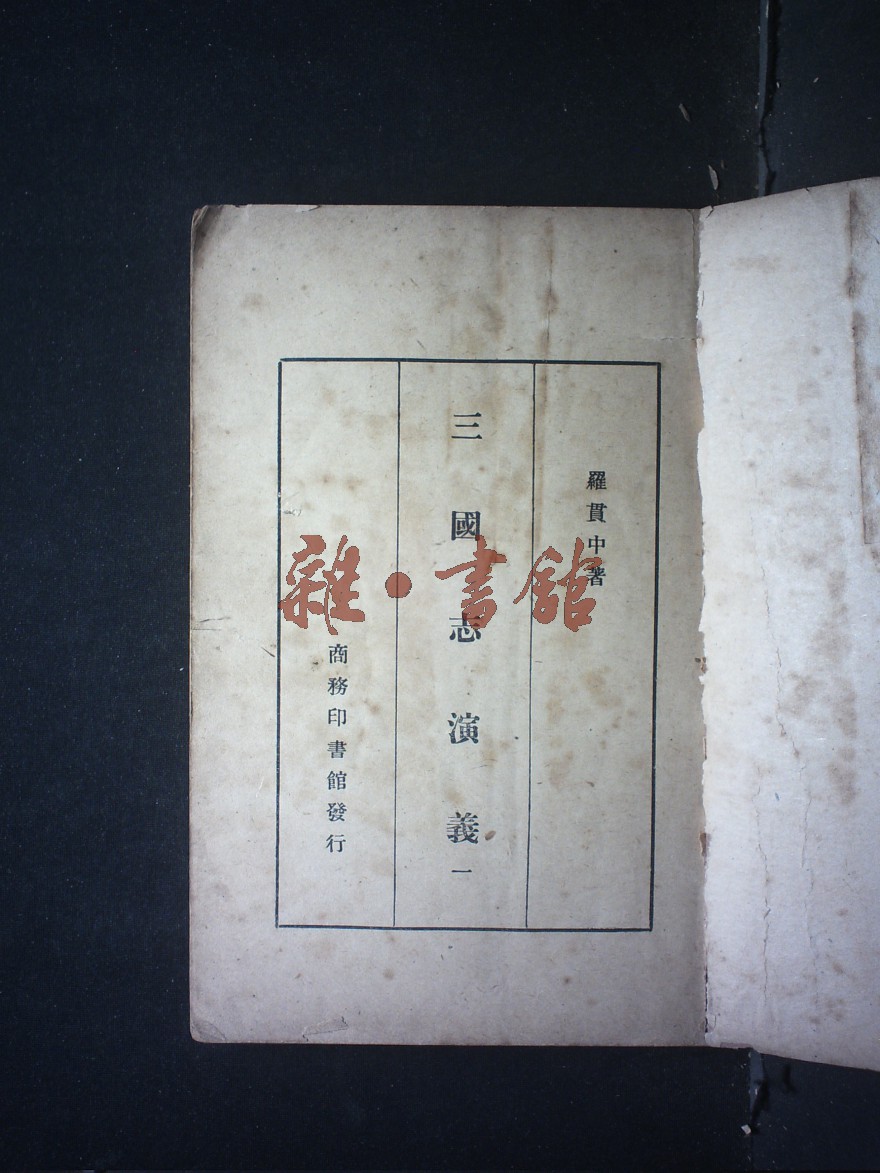 羅貫中著
三國志演義一
商務印書館發行
雜·書館